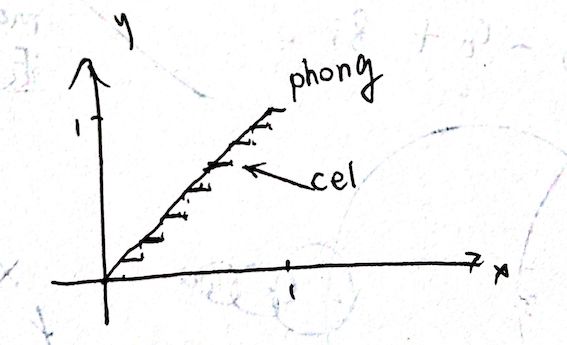 y
phong
1
cel
1
x